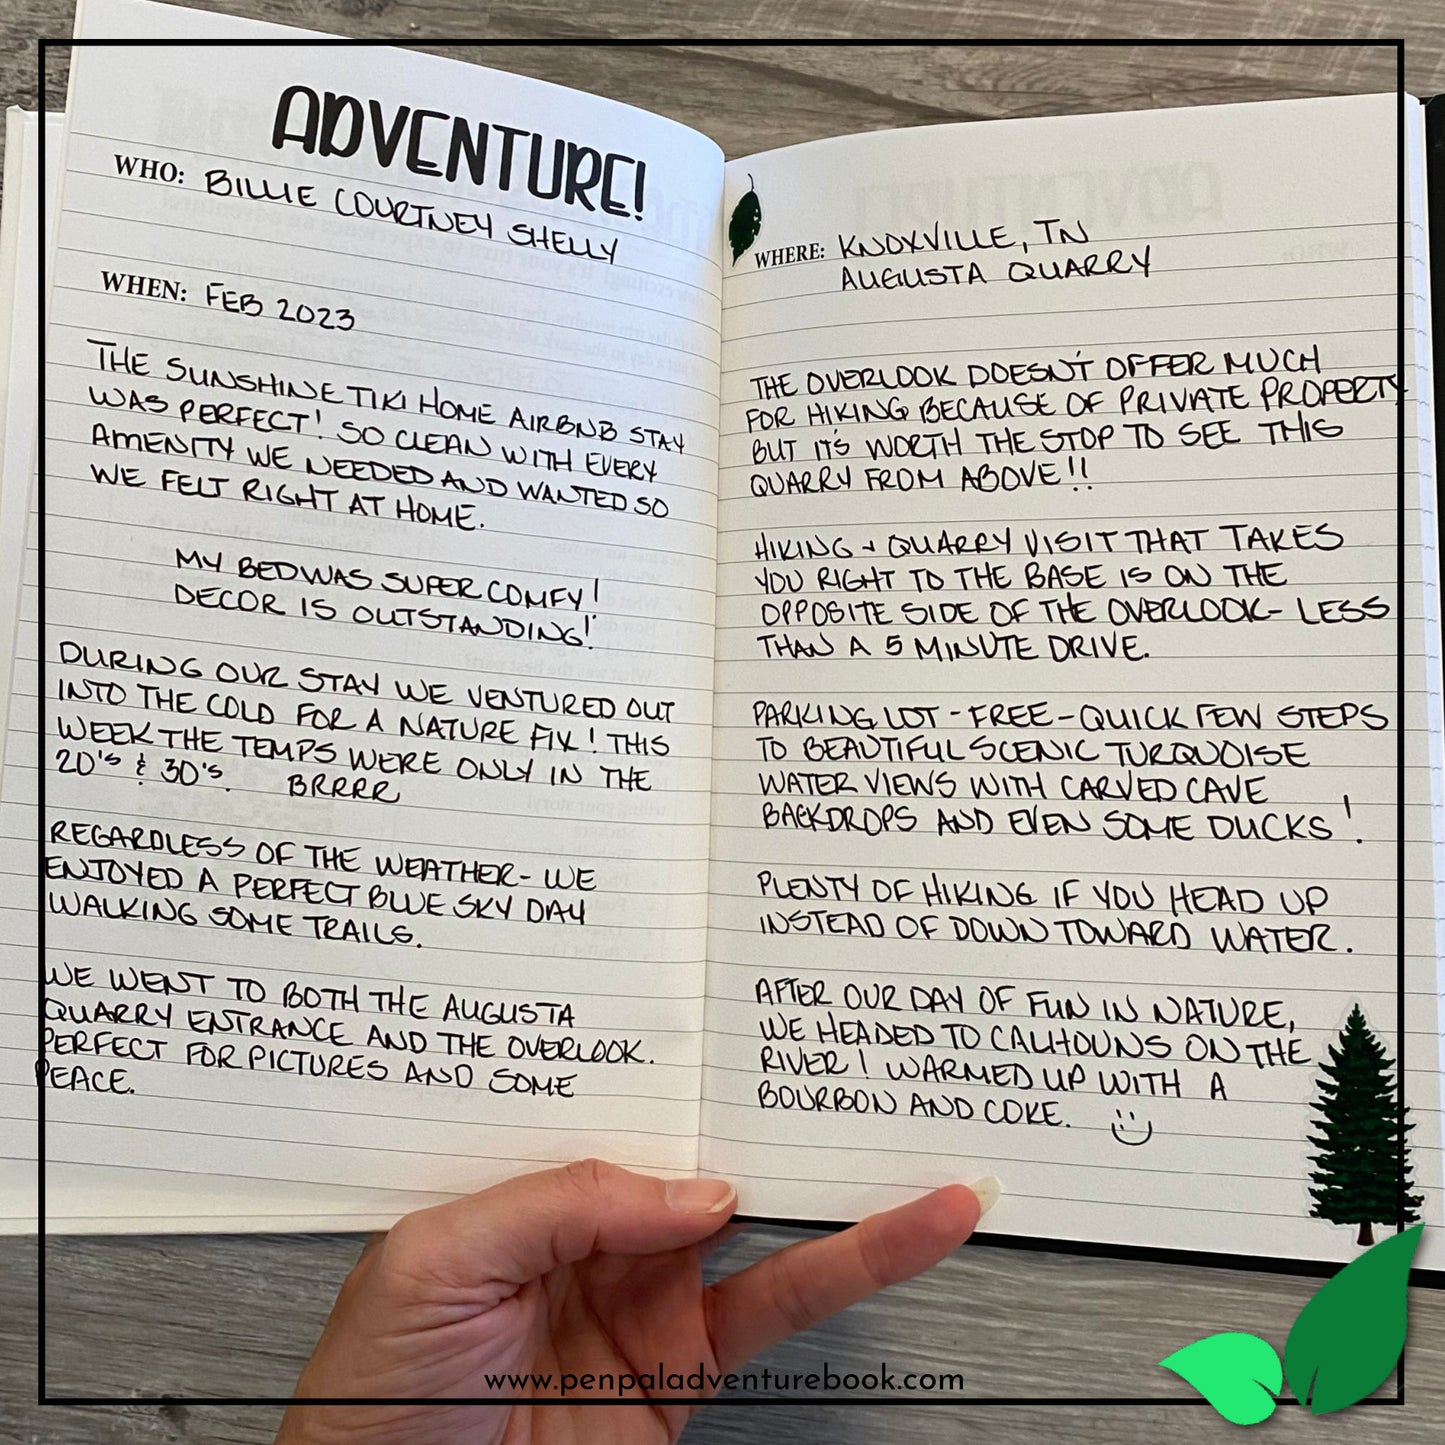 ADVENTURE!
WHO: BILLIE COURTNEY SHELLY
WHEN: FEB 2023
THE SUNSHINE TIKI HOME AIRBNB STAY
WAS PERFECT! SO CLEAN WITH EVERY
AMENITY WE NEEDED AND WANTED SO
WE FELT RIGHT AT HOME.
MY BED WAS SUPER COMFY!
DECOR IS OUTSTANDING!
DURING OUR STAY WE VENTURED OUT
INTO THE COLD FOR A NATURE FIX! THIS
WEEK THE TEMPS WERE ONLY IN THE
20's & 30's. BRRRR
REGARDLESS OF THE WEATHER- WE
ENJOYED A PERFECT BLUE SKY DAY
WALKING SOME TRAILS.
WE WENT TO BOTH THE AUGUSTA
QUARRY ENTRANCE AND THE OVERLOOK.
PERFECT FOR PICTURES AND SOME
PEACE.
WHERE: KNOXVILLE, TN
AUGUSTA QUARRY
THE OVERLOOK DOESN'T OFFER MUCH
FOR HIKING BECAUSE OF PRIVATE PROPERTY
BUT IT'S WORTH THE STOP TO SEE THIS
QUARRY FROM ABOVE!!
HIKING + QUARRY VISIT THAT TAKES
YOU RIGHT TO THE BASE IS ON THE
OPPOSITE SIDE OF THE OVERLOOK- LESS
THAN A 5 MINUTE DRIVE.
PARKING LOT - FREE - QUICK FEW STEPS
TO BEAUTIFUL SCENIC TURQUOISE
WATER VIEWS WITH CARVED CAVE
BACKDROPS AND EVEN SOME DUCKS!
PLENTY OF HIKING IF YOU HEAD UP
INSTEAD OF DOWN TOWARD WATER.
AFTER OUR DAY OF FUN IN NATURE,
WE HEADED TO CALHOUNS ON THE
RIVER! WARMED UP WITH A
BOURBON AND COKE. :)
www.penpaladventurebook.com